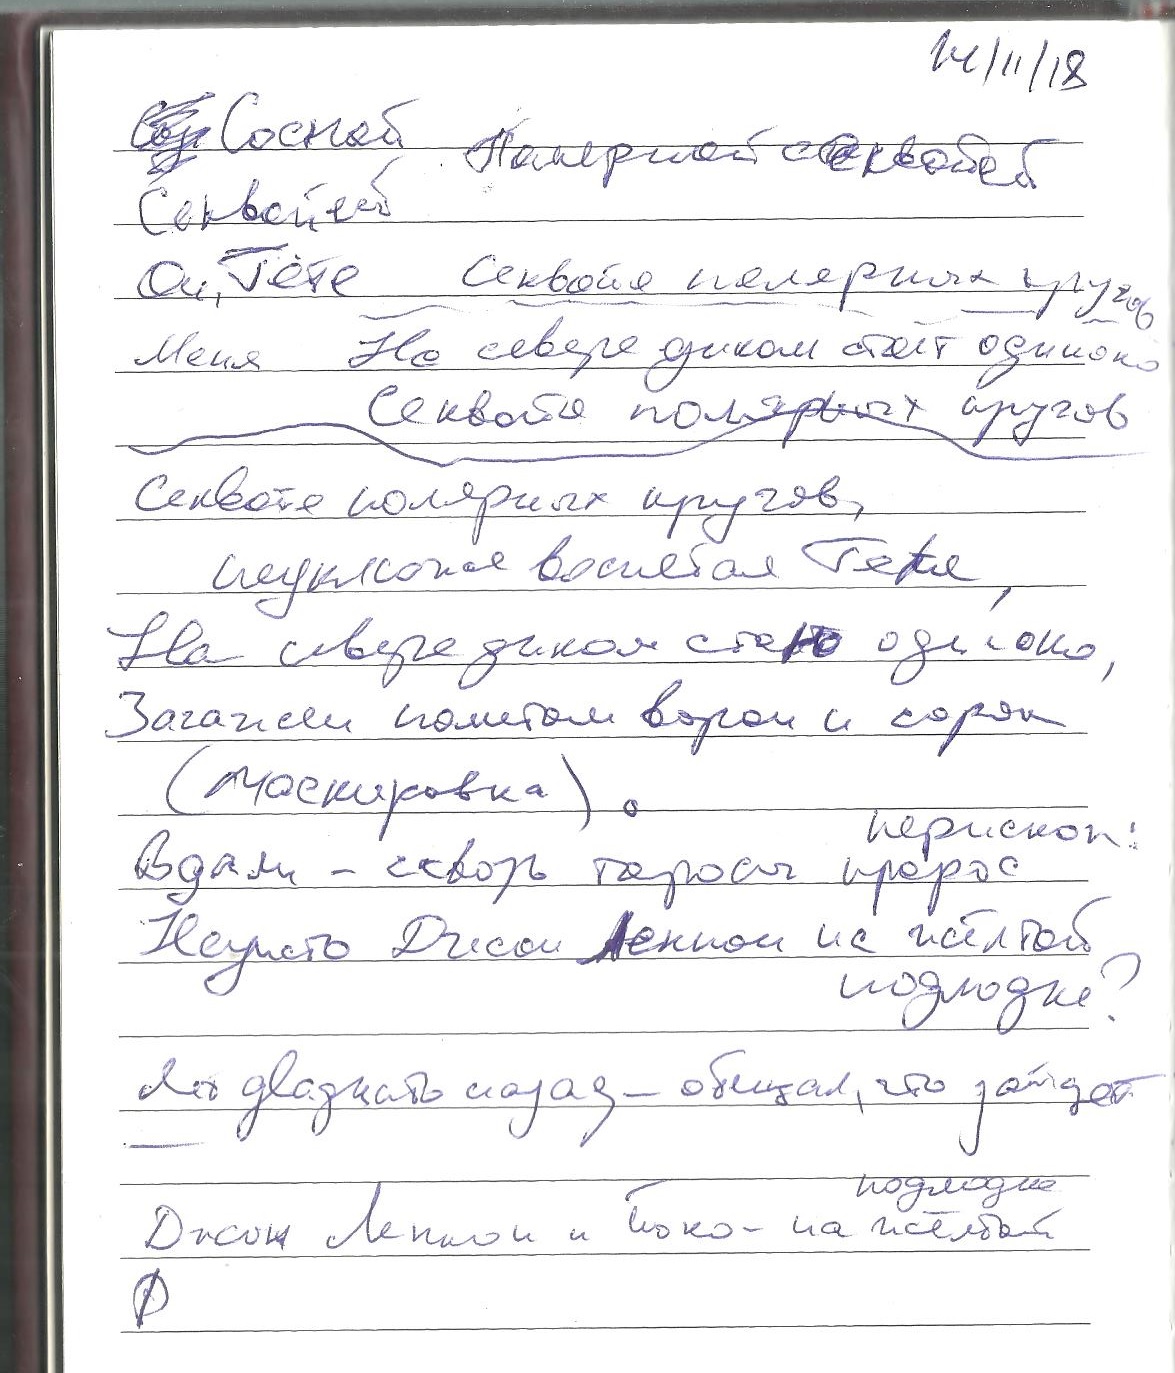 14/11/18
Сосной Полярной секвойей
Секвойей
Ои, Гёте Секвойя полярных кругов
Меня На севере диком стоит одиноко
Секвойя полярных кругов
Секвойя полярных кругов,
неуклонно воспетая Гёте,
На севере диком стою одиноко,
Загажен помётом ворон и сорок
(маскировка).
Вдали – сквозь торосы пророс перископ:
Неужто Джон Леннон на жёлтой
подлодке?
Лет двадцать назад – обещал, что зайдет
Джон Леннон и Йоко – на жёлтой подлодке